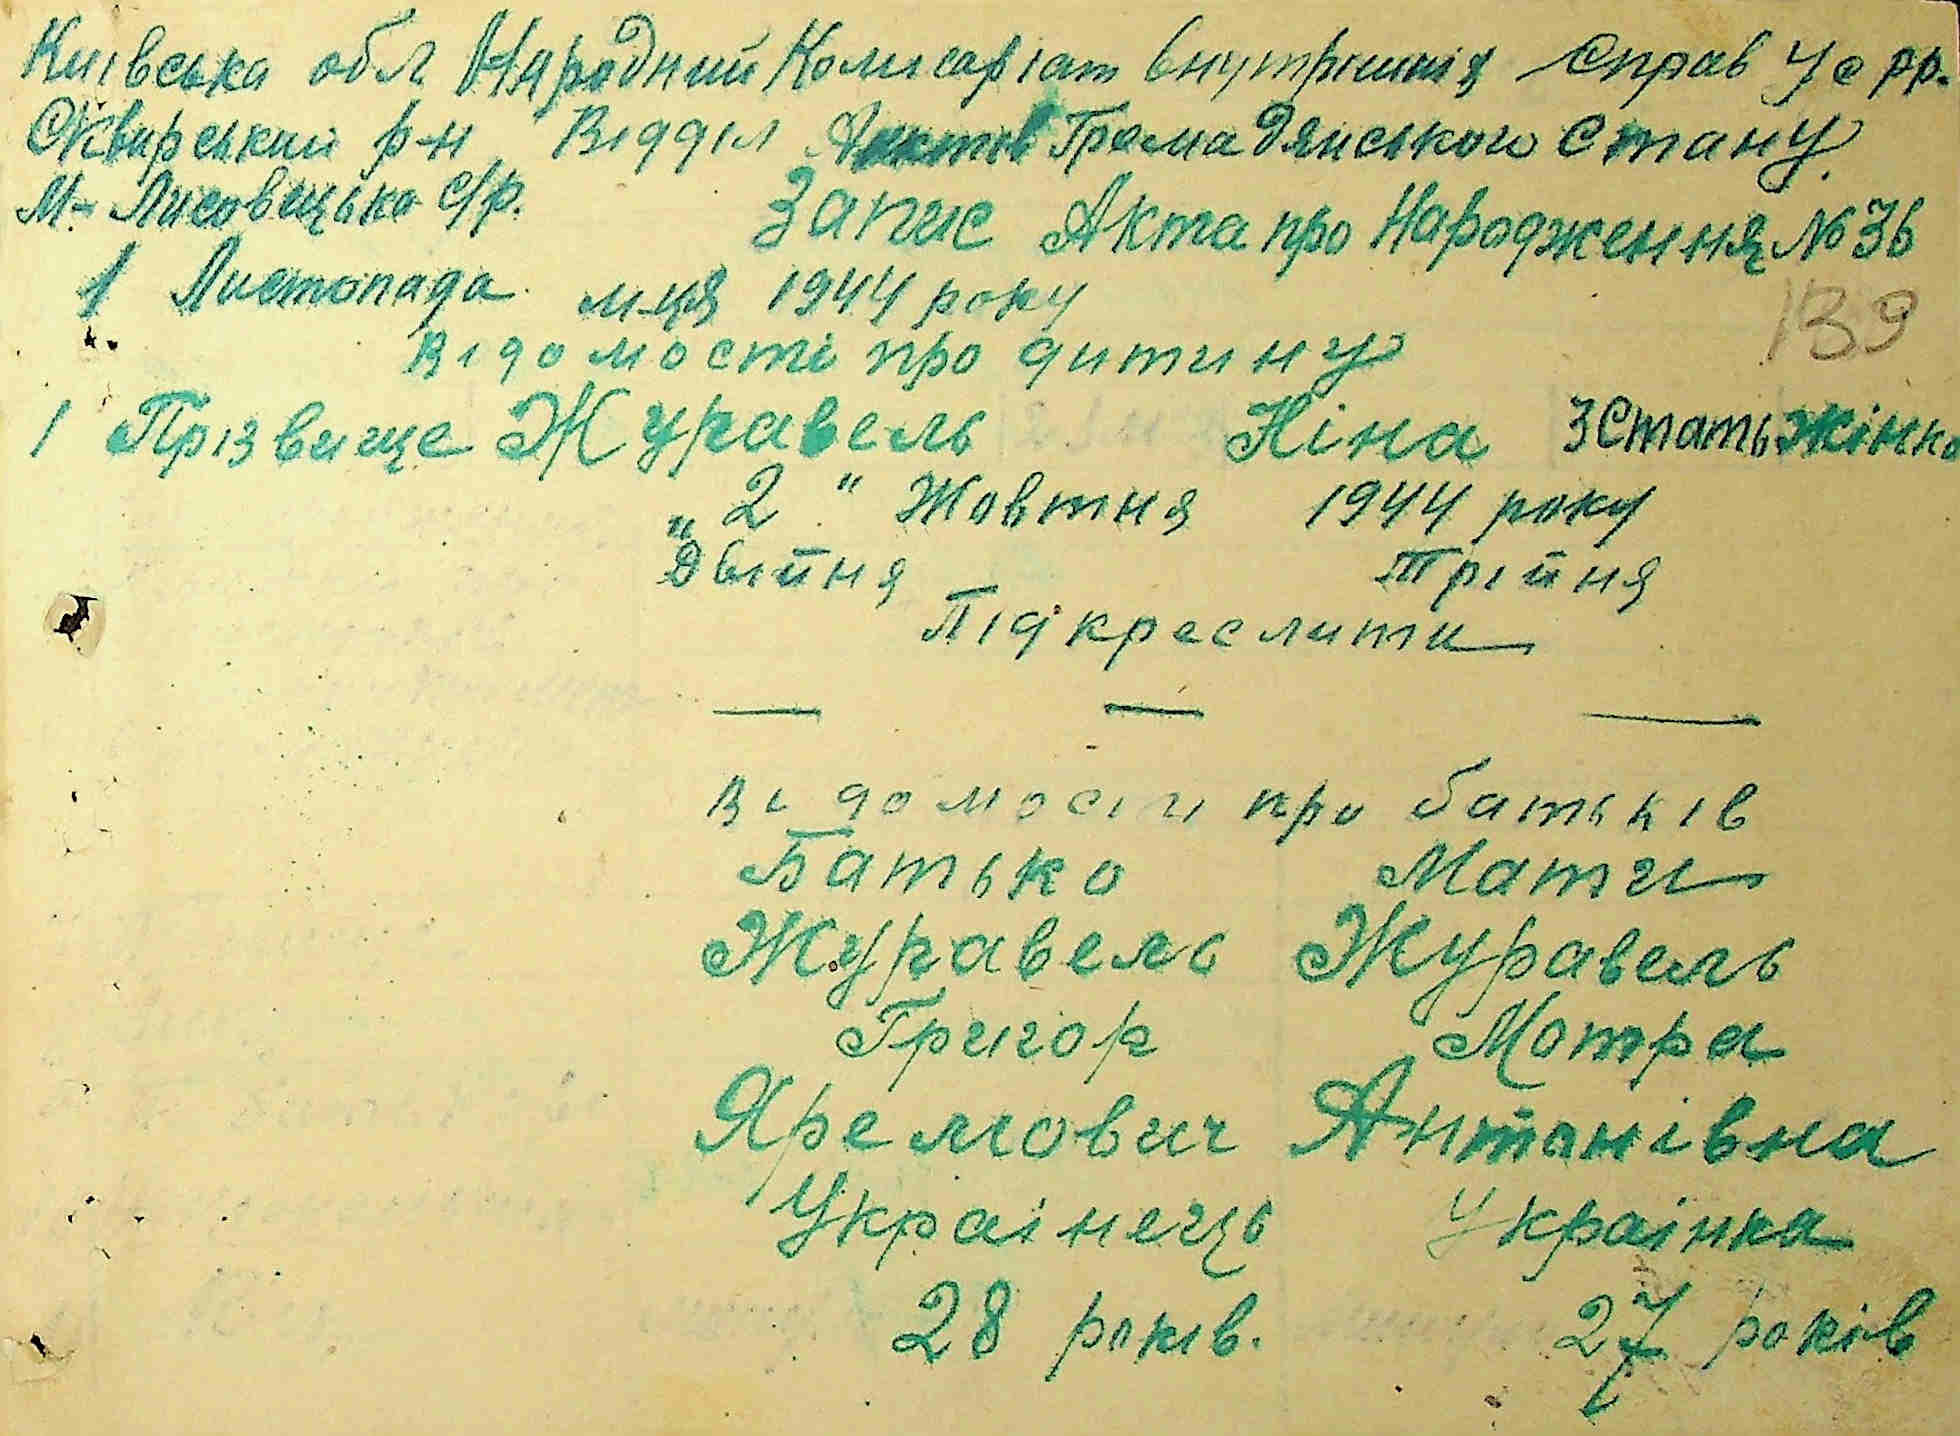 Киівська обл Народний Комисаріат внутрішніх Справ Усрр.
Сквирський р-н Відділ Актів Громадянського Стану
М-Лисовецька С/р. Запис Акта про Народження № 36
1 Листопада м-ця 1944 року
139
Відомості про дитину
1 Прізвище Журавель Ніна 3 Стать жінка
"2" Жовтня 1944 року
Двійня Трійня
Підкреслити
— — —
Відомости про батьків
Батько Мати
Журавель Журавель
Григор Мотра
Яремович Антонівна
Украінець Украінка
28 років. 27 років